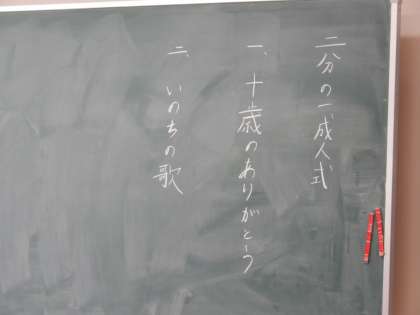 二分の一成人式
一、十歳のありがとう
二、いのちの歌